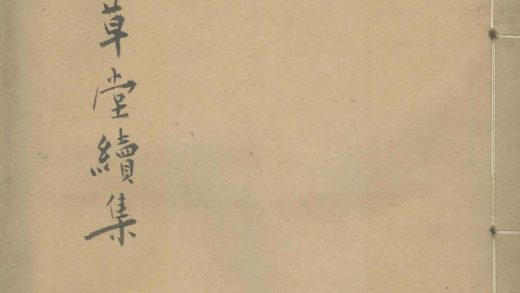 草堂續集